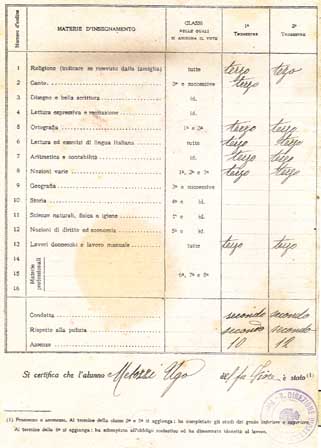 Numero d'ordine MATERIE D'INSEGNAMENTO CLASSI NELLE QUALI SI ASSEGNA IL VOTO 1° TRIMESTRE 2° TRIMESTRE
1 Religione (indicare se ricevuta dalla famiglia) tutte terzo terzo
2 Canto 3ª e successive terzo
3 Disegno e bella scrittura id.
4 Lettura espressiva e recitazione id.
5 Ortografia 1ª e 2ª terzo terzo
6 Lettura ed esercizi di lingua italiana tutte terzo terzo
7 Aritmetica e contabilità id. terzo terzo
8 Nozioni varie 1ª, 2ª e 3ª terzo terzo
9 Geografia 3ª e successive
10 Storia id.
11 Scienze naturali, fisica e igiene id.
12 Nozioni di diritto ed economia 5ª e id.
13 Lavori donneschi e lavoro manuale tutte terzo terzo
14
15 Materie professionali 6ª, 7ª e 8ª
16
Condotta secondo secondo
Rispetto alla pulizia secondo secondo
Assenze 10 12
Si certifica che l'alunno Melozzi Ugo è stato (1)
(1) Promosso o ammesso. Al termine della classe 3ª e 5ª si aggiunga: ha completato gli studi del grado inferiore o superiore.
Al termine della 8ª si aggiunga: ha adempiuto all'obbligo scolastico ed ha dimostrato idoneità al lavoro.